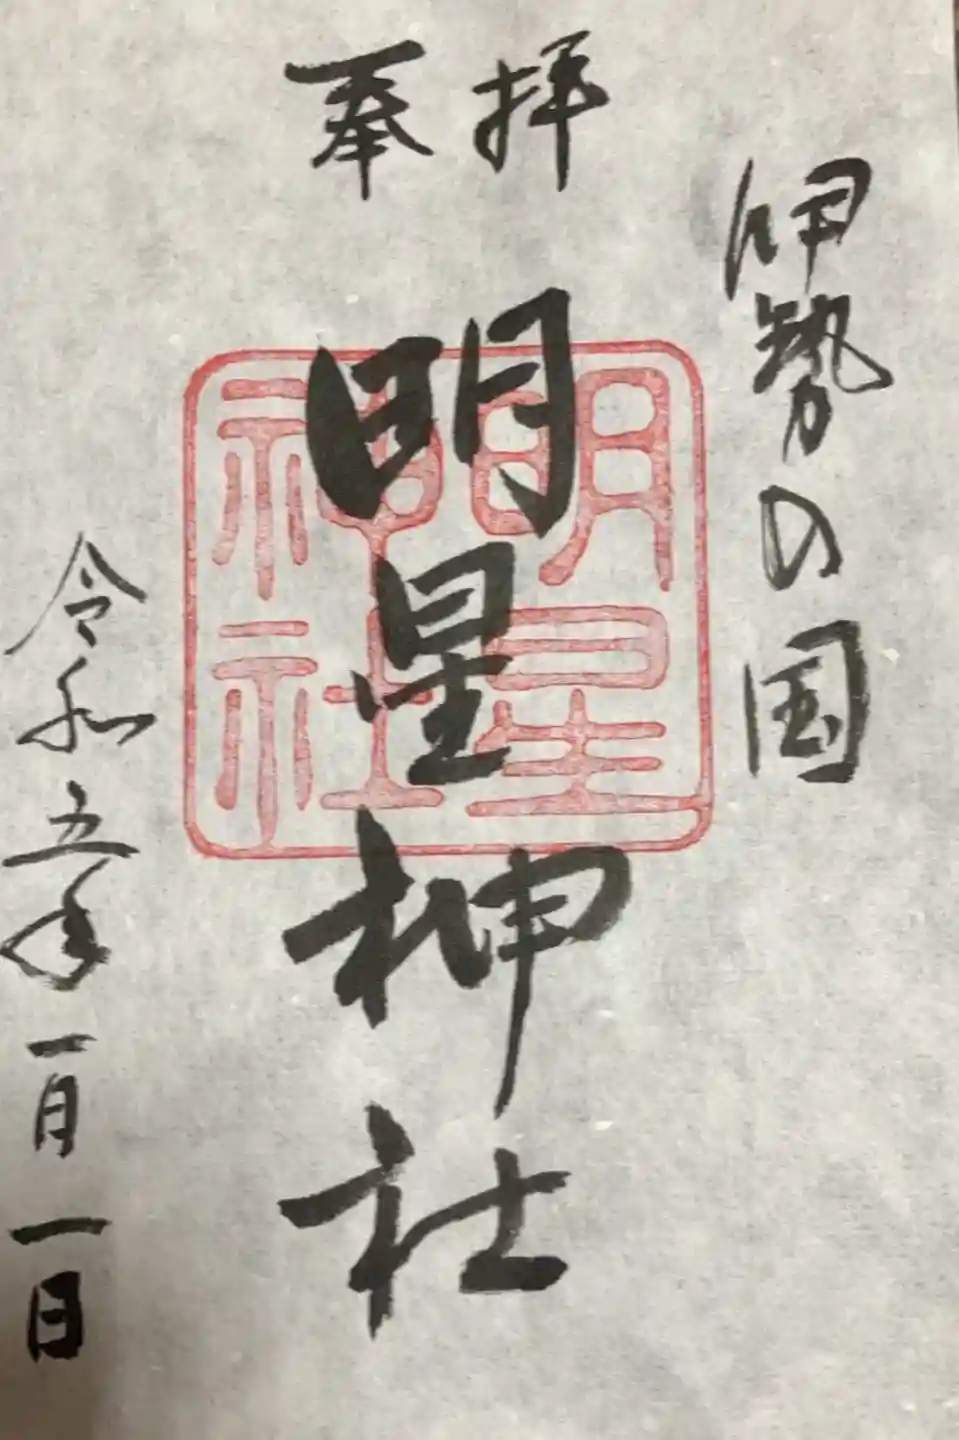 伊勢の国
奉拝
明星神社
明星神社
令和五年一月一日